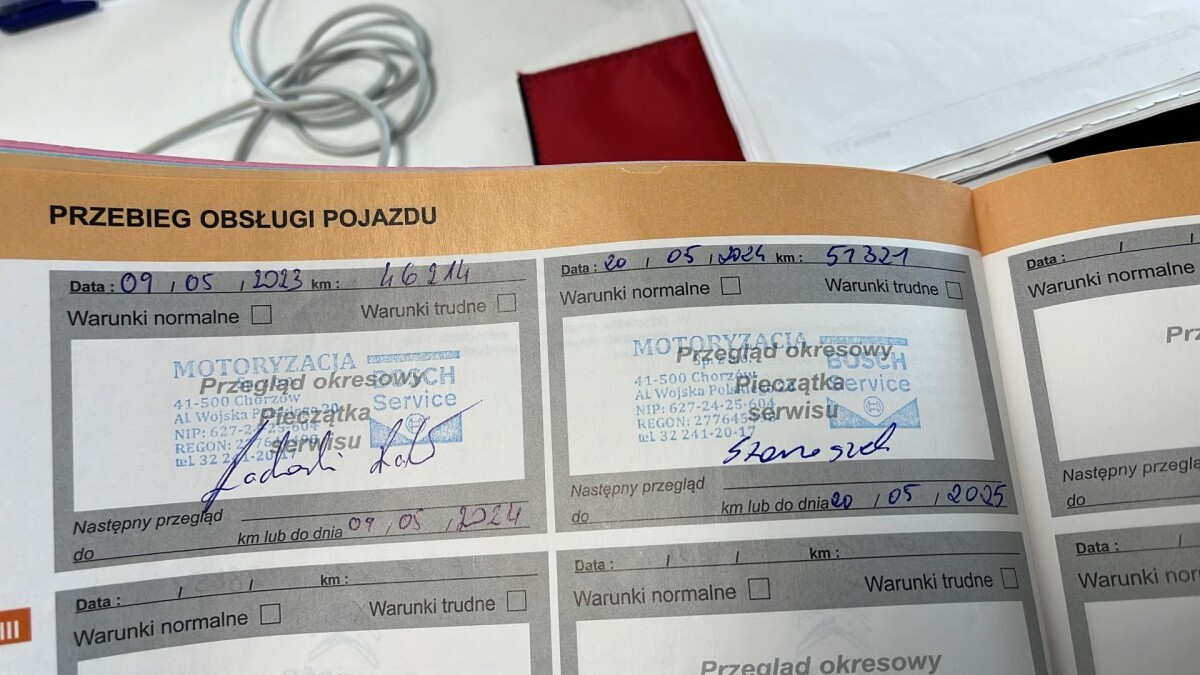 PRZEBIEG OBSŁUGI POJAZDU
Data : 09 / 05 / 2023 km : 46214
Warunki normalne Warunki trudne
MOTORYZACJA
Sp. z o.o.
41-500 Chorzów
Al. Wojska
NIP: 627-24-25-604
REGON:
tel. 32 241-20-17
BOSCH
Service
Przegląd okresowy
Pieczątka
serwisu
Następny przegląd
do km lub do dnia 09 / 05 / 2024
Data : 20 / 05 / 2024 km : 51321
Warunki normalne Warunki trudne
MOTORYZACJA
Sp. z o.o.
41-500 Chorzów
Al. Wojska
NIP: 627-24-25-604
REGON:
tel. 32 241-20-17
BOSCH
Service
Przegląd okresowy
Pieczątka
serwisu
Następny przegląd
do km lub do dnia 20 / 05 / 2025
Data : / /
Warunki normalne
Prz
Następny przeglą
do
Data : / / km :
Warunki normalne Warunki trudne
Data : / / km :
Warunki normalne Warunki trudne
Przegląd okresowy
Data : /
Warunki nor
III